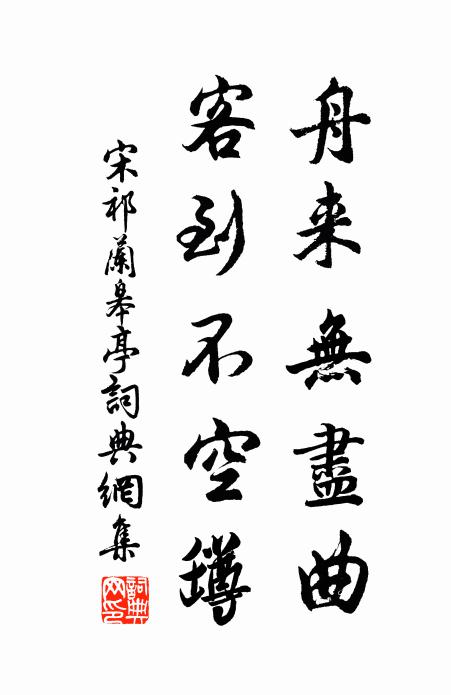 舟来無盡曲
客到不空罇
宋祁蘭皋亭詞典網集
詞典
网印